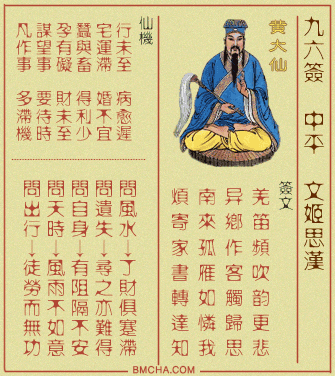 九六簽 中平 文姬思漢
黃大仙
簽文
羌笛頻吹韵更悲
异鄉作客觸歸思
南來孤雁如憐我
煩寄家書轉達知
仙機
行未至 病愈遲
宅運滯 婚不宜
蠶與畜 得利少
孕有礙 財未至
謀望事 要待時
凡作事 多滯機
問風水→了財俱塞滯
問遺失→尋之亦難得
問自身→有阻隔不安
問天時→風雨不如意
問出行→徒勞而無功
BMCHA.COM